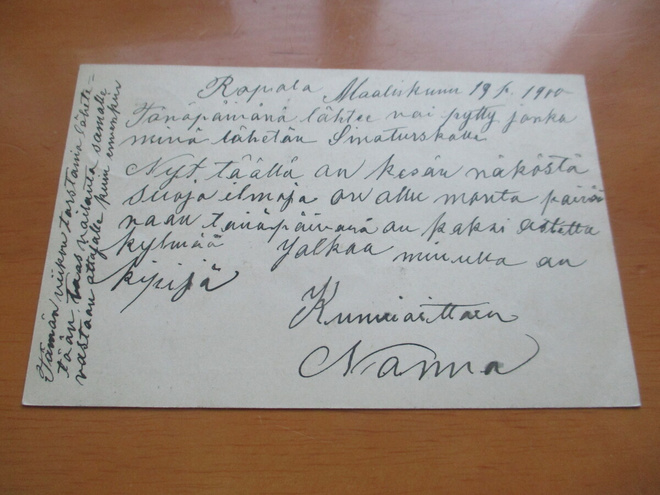 Rapala Maaliskuun 19 p. 1900
Tänäpäivänä lähtee voi pytty jonka
minä lähetän
Nyt täällä on kesän näköstä
suoja ilmoja on ollu monta päivää
vaan tänäpäivänä on kaksi astetta
kylmää Jalkaa minulla on
kipijä
Kunnioittaen
Nanna
Tämän viikon torstaina lähete-
tään taas voilasta samalle
vastaan ottajalle kuin ennenkin